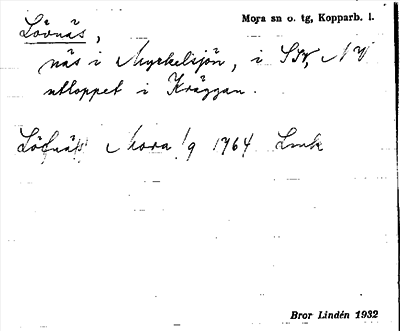 Lövnäs,
Mora sn o. tg, Kopparb. l.
näs i Myckelsjön, i SV, NV
utloppet i Kräggan.
Löfnäs Mora 1/9 1764 Lmk
Bror Lindén 1932